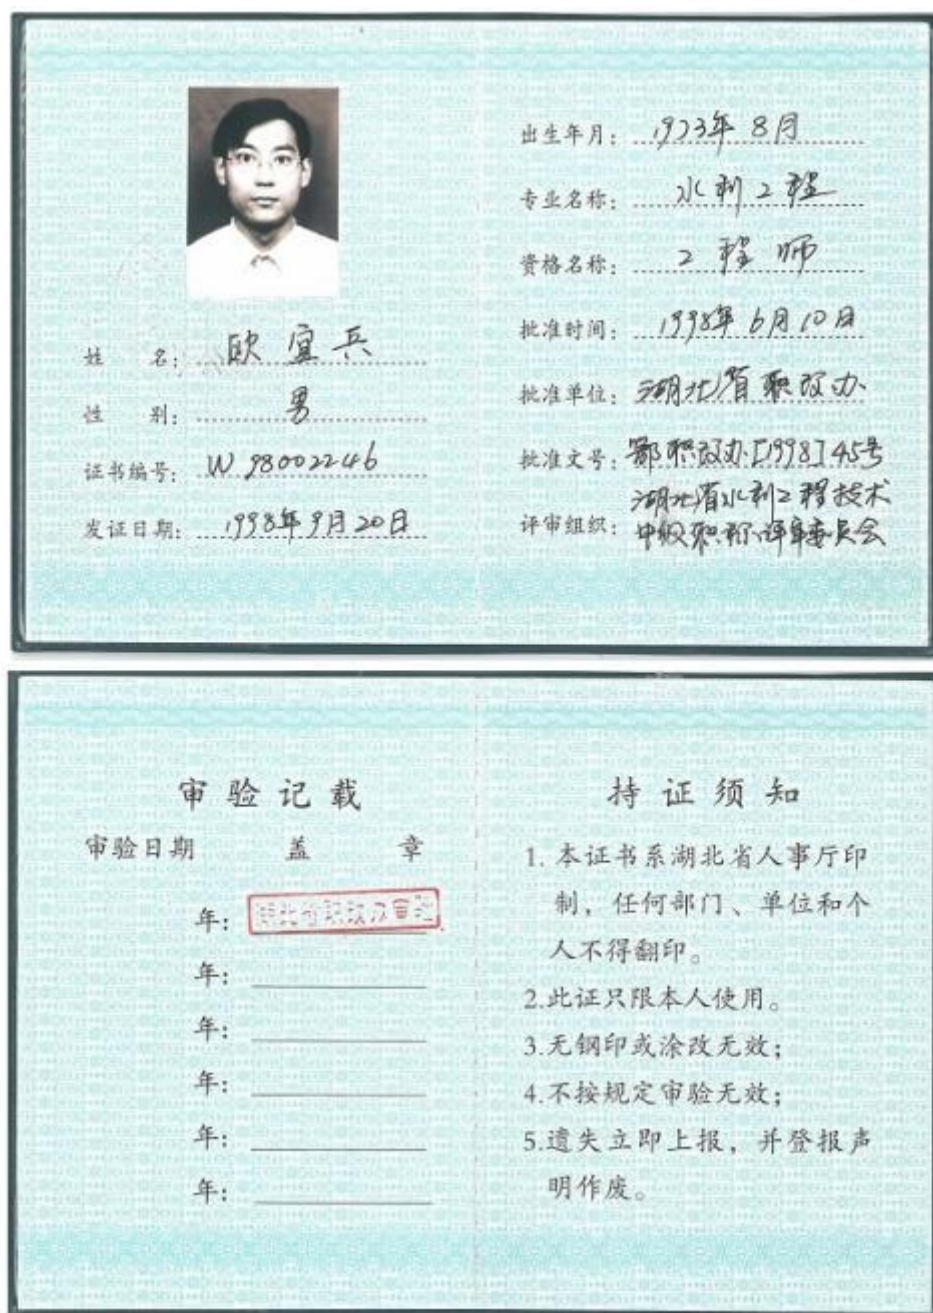 姓 名: 欧宜兵
性 别: 男
证书编号: W 98002246
发证日期: 1998年9月20日
出生年月: 1973年8月
专业名称: 水利工程
资格名称: 工程师
批准时间: 1998年6月10日
批准单位: 湖北省职改办
批准文号: 鄂职改办[1998]45号
评审组织: 湖北省水利工程技术
中级职称评审委员会
审验记载
审验日期 盖 章
年: 湖北省职改办审验
年:
年:
年:
年:
年:
持证须知
1. 本证书系湖北省人事厅印
制,任何部门、单位和个
人不得翻印。
2.此证只限本人使用。
3.无钢印或涂改无效;
4.不按规定审验无效;
5.遗失立即上报,并登报声
明作废。